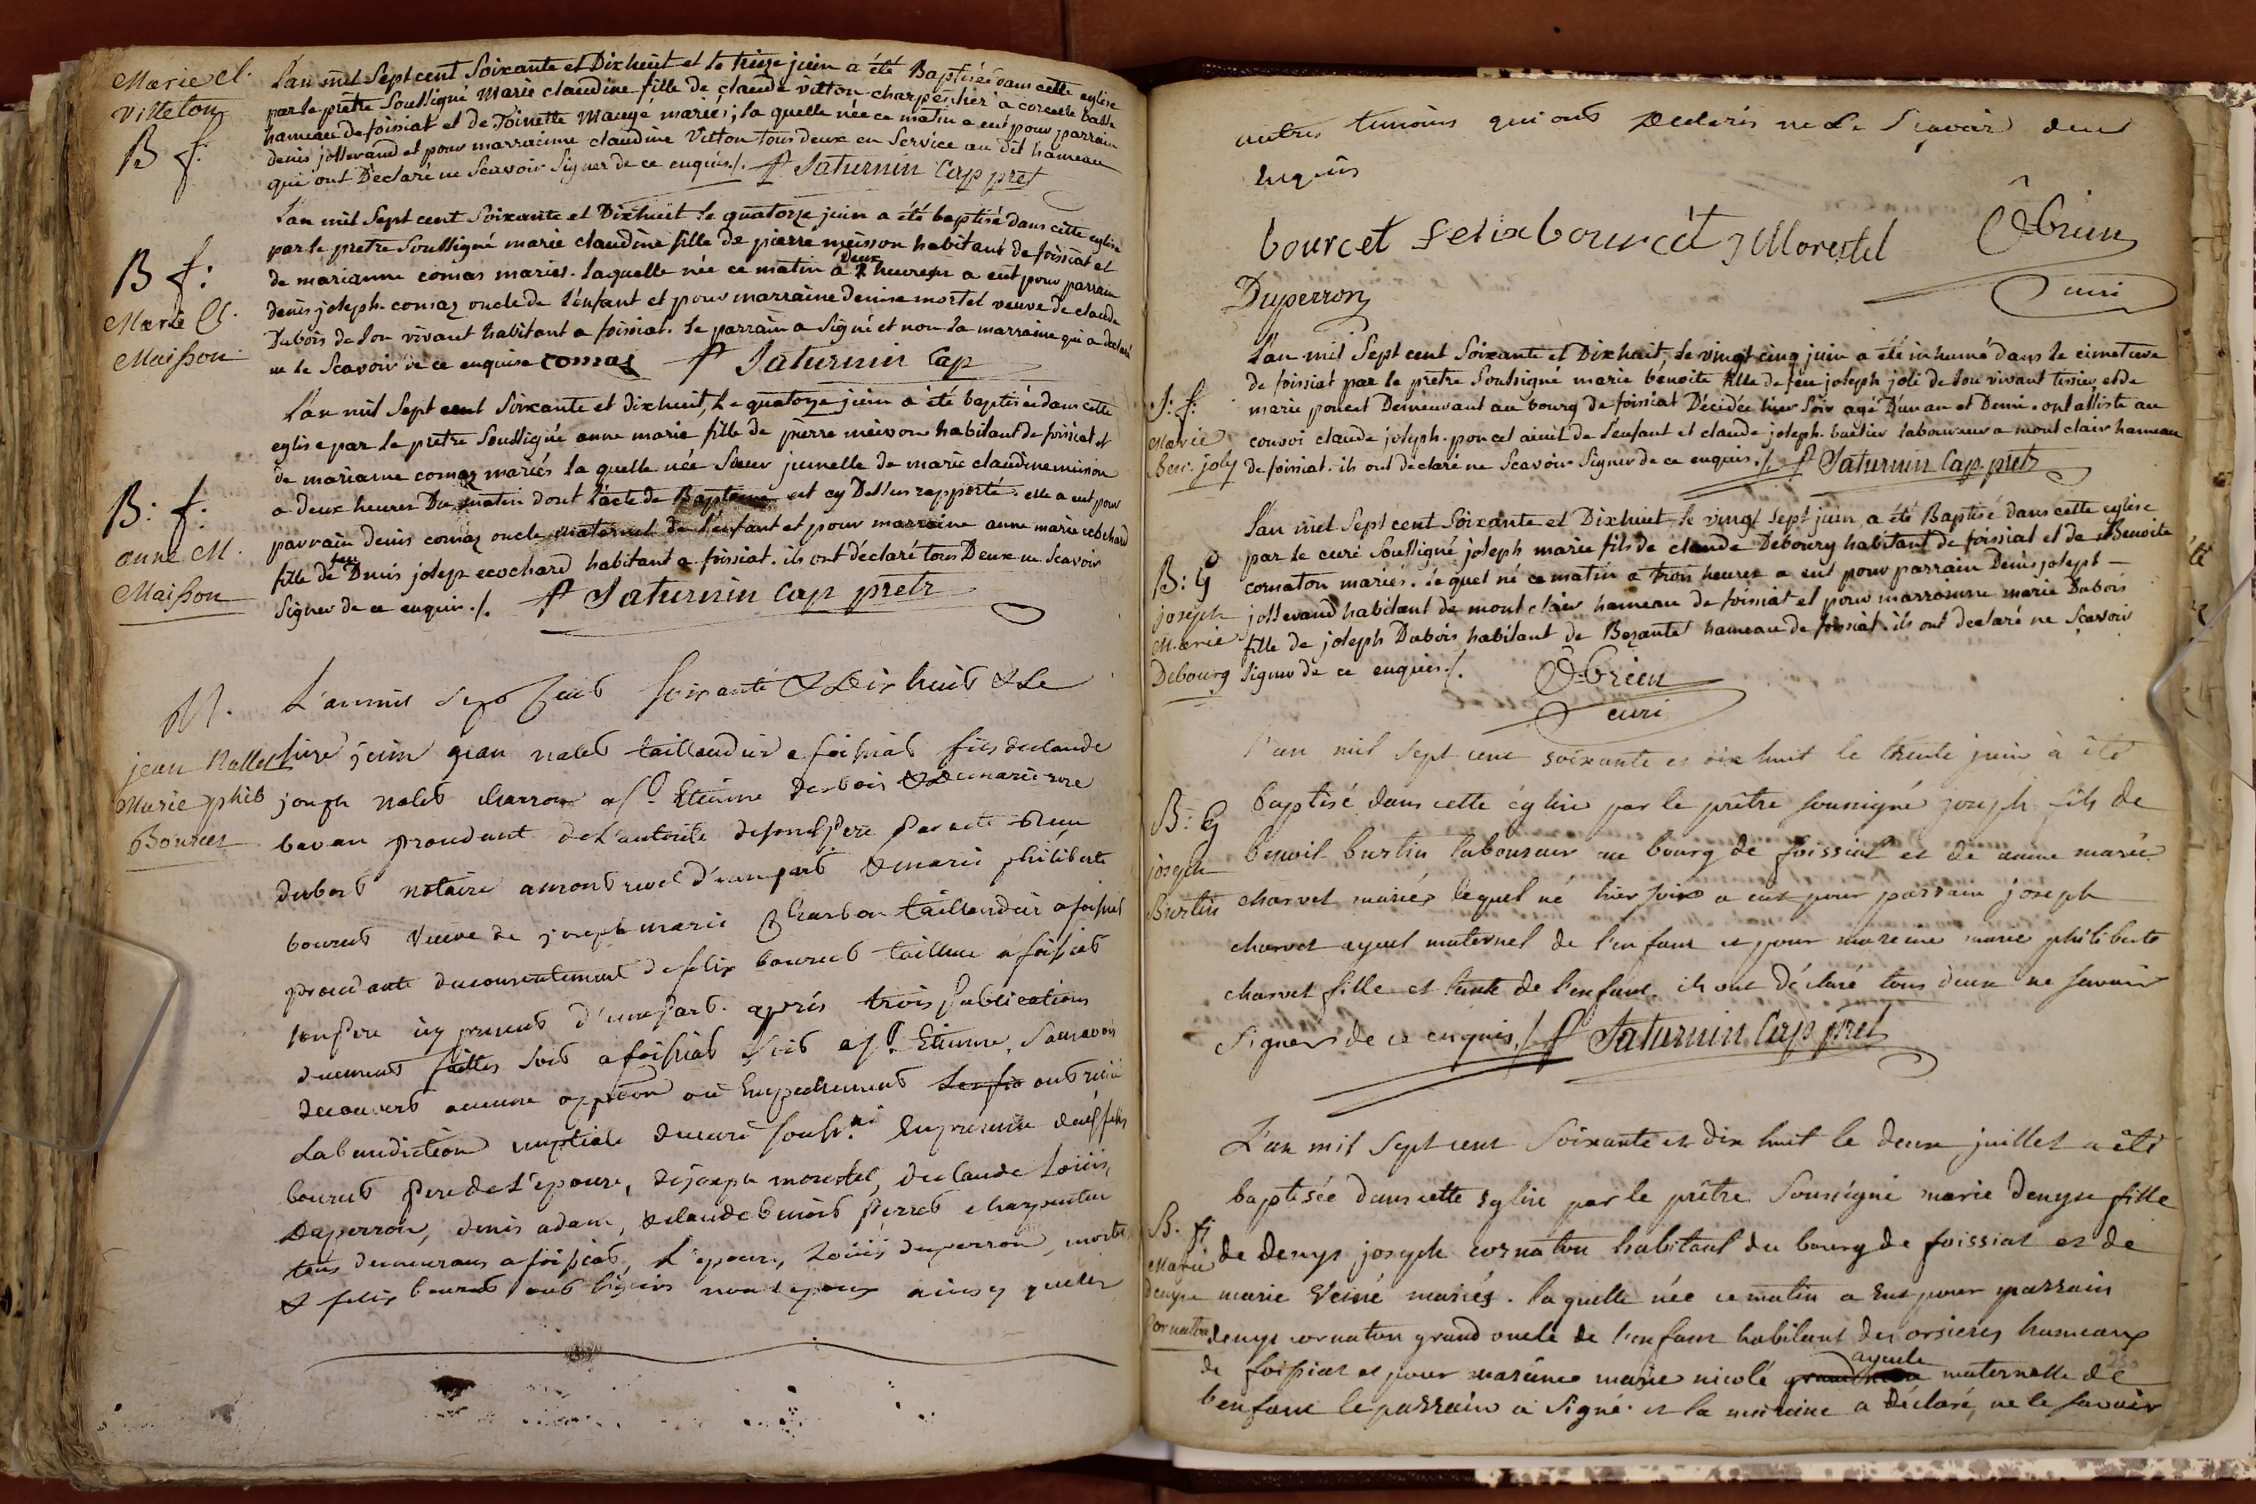 Marie Cl.
Vitteton
B f:
L'an mil Sept cent Soixante et Dixhuit et le treize juin a été Baptisée dans cette eglise
par le prêtre Soussigné Marie claudine fille de claude vitton charpentier a
hameau de foissiat et de Toinette Maugé mariés; la quelle née ce matin a eut pour parrain
denis jollevand et pour marrainne claudine Vitton tous deux en Service au dit hameau
qui ont Declaré ne Scavoir Signer de ce enquis./. f Saturnin Cap pret
B f:
Marie Cl.
Maisson
L'an mil Sept cent Soixante et Dixhuit le quatorze juin a été baptisé dans cette eglise
par le pretre Soussigné marie claudine fille de pierre meisson habitant de foissiat et
de marianne comas mariés. laquelle née ce matin a deux heures a eut pour parrain
denis joseph comas oncle de l'enfant et pour marraine denise mortel veuve de claude
Dubois de Son vivant habitant a foissiat. le parrain a Signé et non la marraine qui a declaré
ne le Scavoir de ce enquise comas f Saturnin Cap
B: f:
anne M.
Maisson
L'an mil Sept cent Soixante et dixhuit, le quatorze juin a été baptisée dans cette
eglise par le pretre Soussigné anne marie fille de pierre meisson habitant de foissiat et
de marianne comas mariés la quelle née Soeur jumelle de marie claudine
a deux heures Du matin dont l'acte de Bapteme est cy Dessus rapporté. elle a eut pour
parrain denis comas oncle maternel de l'enfant et pour marraine anne marie
fille de feu Denis josep ecochard habitant a foissiat. ils ont déclaré tous Deux ne Scavoir
Signer de ce enquis./. f Saturnin Cap pretr
M.
jean Nallet
Marie phil
Bourcet
L'an mil Sept Cent Soixante & Dix huit & Le
juin jean nalet taillandier a foissiat fils de claude
joseph nalet charron a St Etienne du bois & de marie
bavan procedant de L'autorite de son Pere par acte
dubost notaire a d'une part & marie philiberte
bourcet Veuve de joseph marie Charbon taillandier a foissiat
procedante du consentement de felix bourcet tailleur a foissiat
son Pere icy present d'une part. après trois Publications
duement faittes soit a foissiat soit a St Etienne, Sans avoir
decouvert aucune opp̃tion ou Empechement ont reçu
La benediction nuptiale du curé souss.né En presence de felix
bourcet Pere de L'epouse, de joseph morestel, de claude Loüis
Duperron, denis adam, & claude benoit Perret charpentier
tous demeurans a foissiat, L'epouse, Loüis duperron,
& felix bourcet ont signés non l'epoux ainsy que les
autres temoins qui ont Declarés ne Le Sçavoir de ce
enquis
bourcet felix bourcét J Morestel Obrien
Duperron curé
S: f:
Marie
Ben. joly
L'an mil Sept cent Soixante et Dixhuit, le vingt cinq juin a été inhumé dans le cimetiere
de foissiat par le prêtre Soussigné marie bénoite fille de feu joseph joli de Son vivant tissier, et de
marie poncet Demeurant au bourg de foissiat Décédée hier Soir agé D'un an et Demi. ont assisté au
convoi claude joseph poncet de l'enfant et claude joseph laboureur a mont clair hameau
de foissiat. ils ont declaré ne Scavoir Signer de ce enquis./. f Saturnin Cap. pretr
B: G
joseph
Marie
Debourg
L'an mil Sept cent Soixante et Dixhuit le vingt Sept juin a été Baptisé dans cette eglise
par le curé Soussigné joseph marie fils de claude Debourg habitant de foissiat et de Benoite
cornaton mariés. lequel né ce matin a trois heures a eut pour parrain Denis joseph
jollevand habitant de mont clair hameau de foissiat et pour marrainne marie Dubois
fille de joseph Dubois habitant de Bezantet hameau de foissiat. ils ont declaré ne Scavoir
Signer de ce enquis./. Obrien
curé
B: G
joseph
Burtin
L'an mil sept cent soixante et dix huit le trente juin à été
baptisé dans cette église par le prêtre soussigné joseph fils de
benoit burtin laboureur au bourg de foissiat et de anne marie
charvet mariés lequel né hier soir a eut pour parrain joseph
charvet ayeul maternel de l'enfant et pour mareine marie philiberte
charvet fille et tante de l'enfant. ils ont déclaré tous deux ne savoir
signer de ce enquis./. f Saturnin Cap pret
B. fi
Marie
denyse
Cornaton
L'an mil sept cent soixante et dix huit le deux juillet a été
baptisée dans cette eglise par le prêtre soussigné marie denyse fille
de denys joseph cornaton habitant du bourg de foissiat et de
marie mariés. la quelle née ce matin a eut pour parrain
denys cornaton grand oncle de l'enfant habitant des orsieres hameau
de foissiat et pour mareine marie nicole ayeule maternelle de
l'enfant le parrain a signé et la mareine a déclaré, ne le savoir